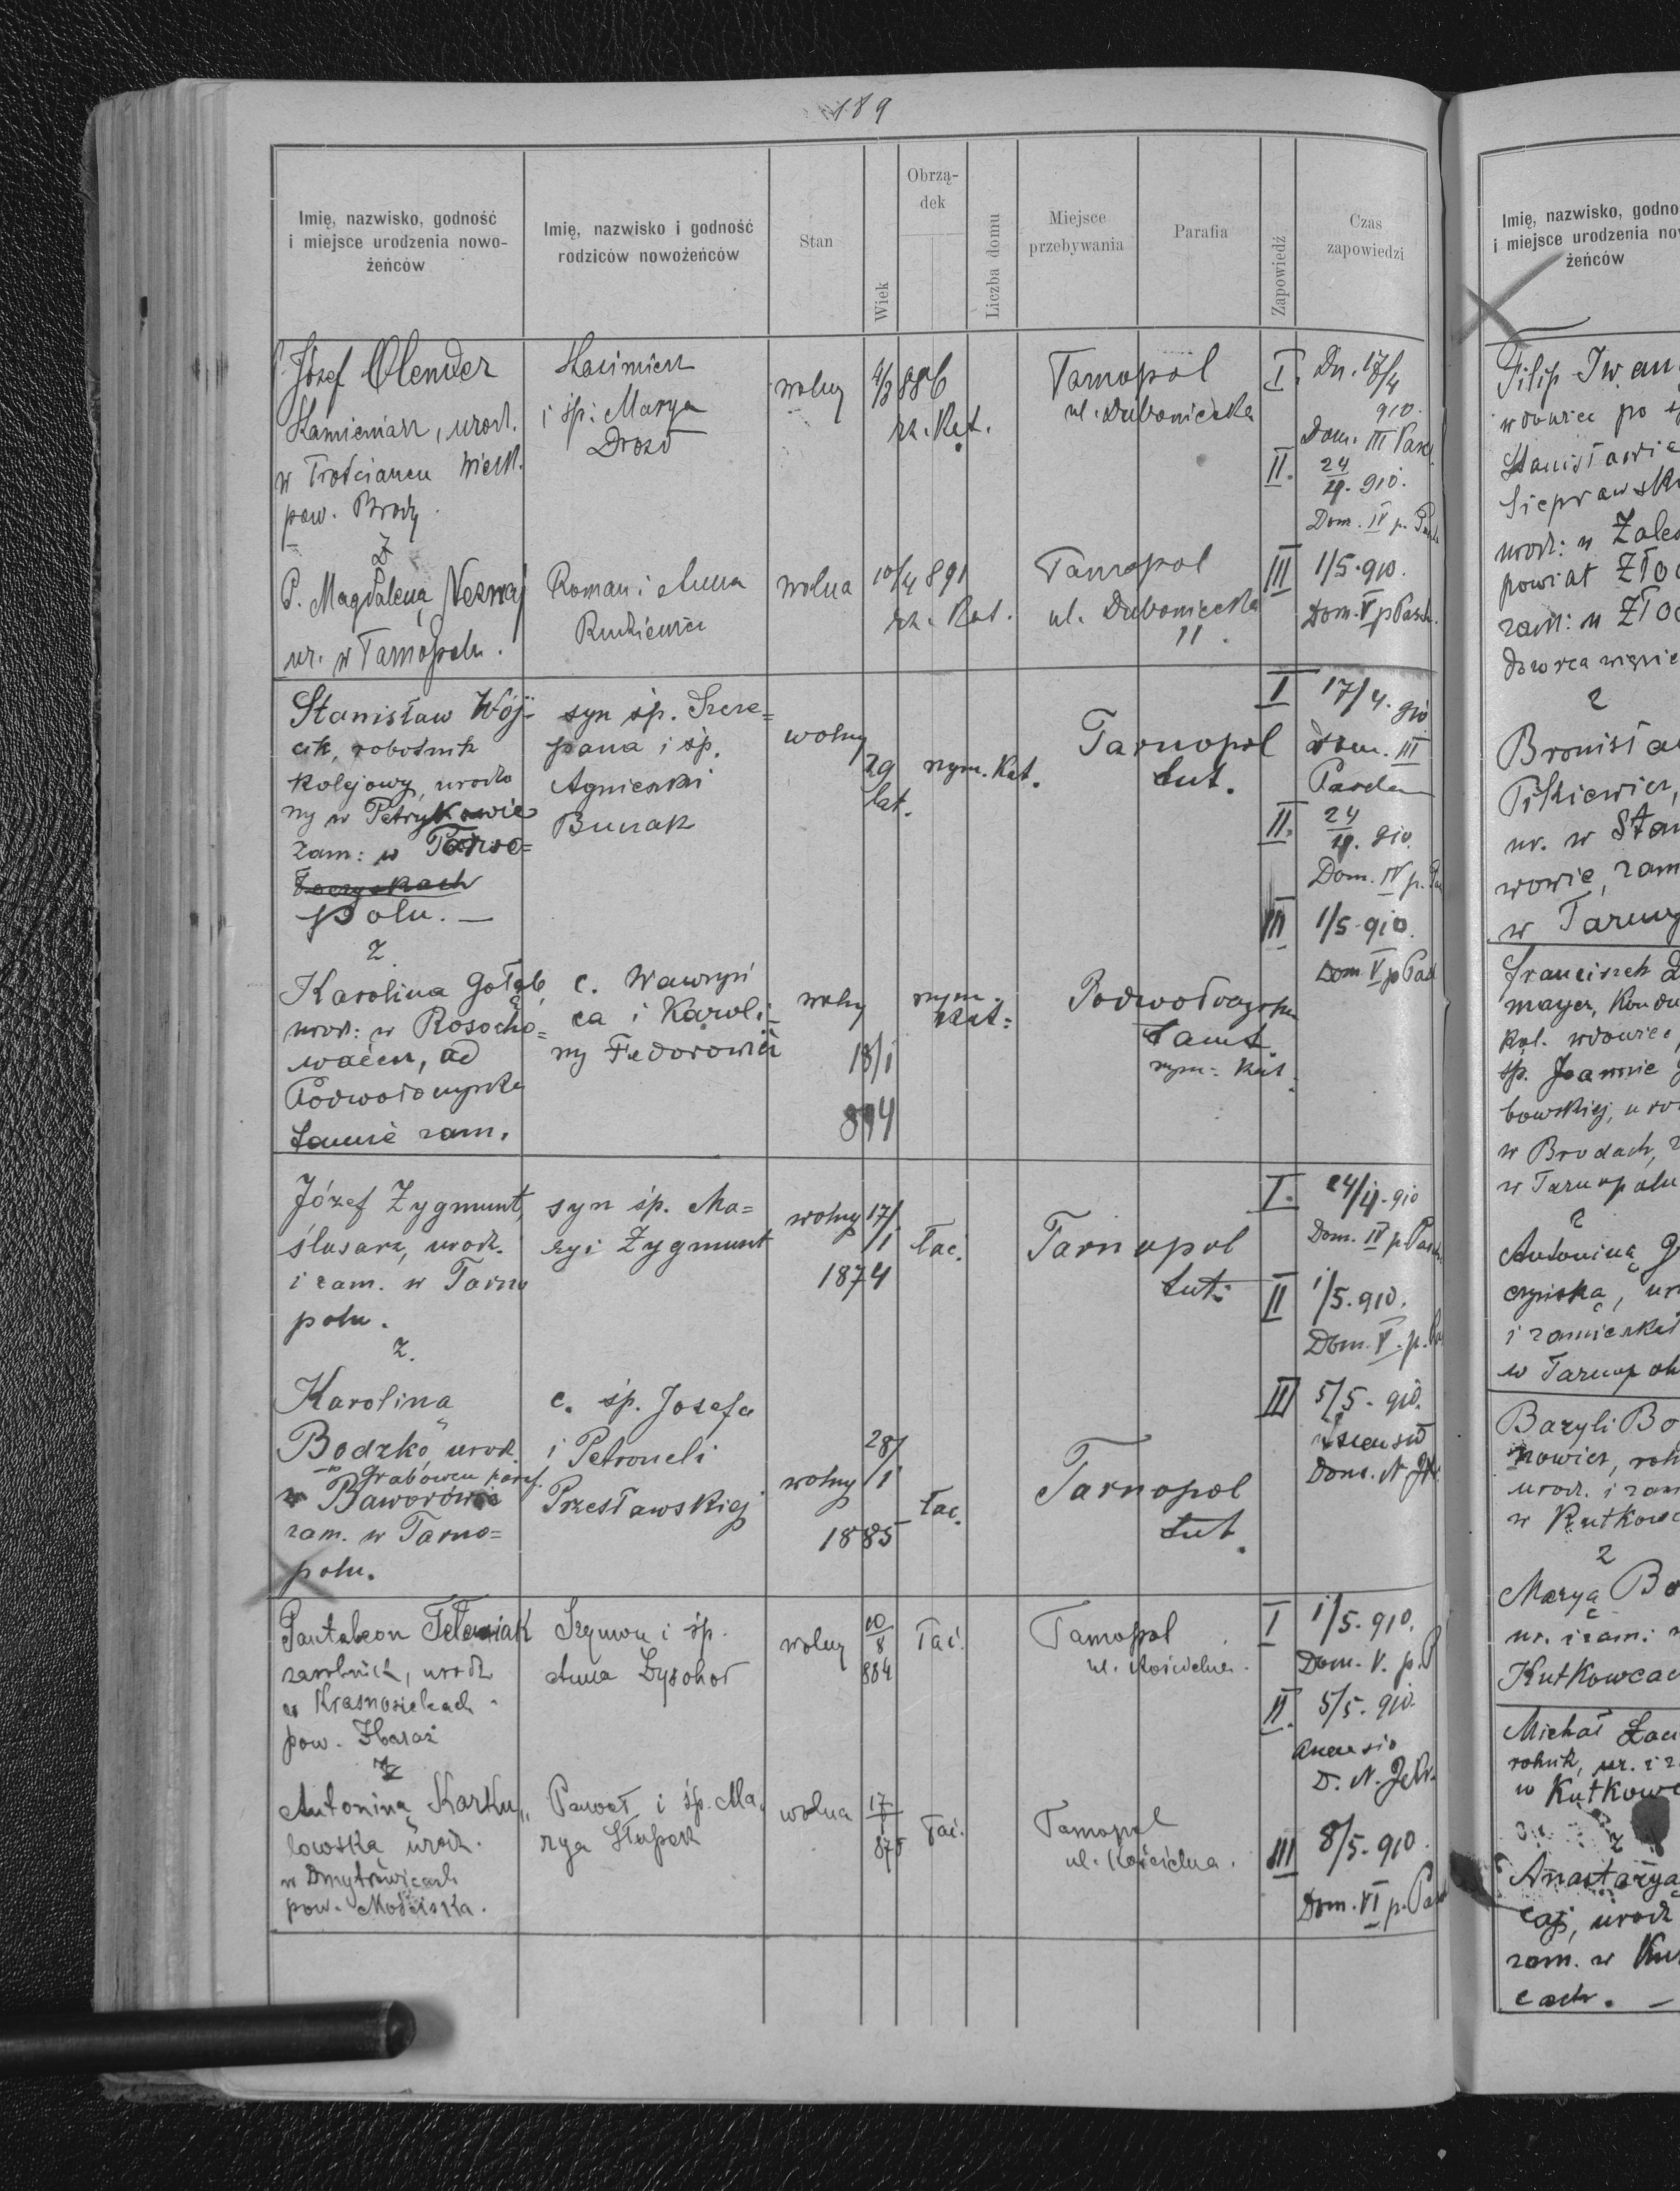 189
Imię, nazwisko, godność
i miejsce urodzenia nowo-
żeńców
Imię, nazwisko i godność
rodziców nowożeńców
Stan
Wiek
Obrzą-
dek
Liczba domu
Miejsce
przebywania
Parafia
Zapowiedź
Czas
zapowiedzi
Józef Olender
Kamieniarz, urodz.
w Trościańcu wielk.
pow. Brody.
Z
P. Magdaleną
ur. w Tarnopolu.
Kazimierz
i śp: Marya
Drozd
Roman i Anna
wolny
wolna
886
rz. Kat.
10/4 891
rz. Kat.
Tarnopol
ul. Dubaniecka
Tarnopol
ul. Dubaniecka
11.
I.
17/4
910.
Dom. III Pasc.
II.
24
4. 910.
Dom. IV p.
III
1/5. 910.
Dom. V p Pasch.
Stanisław Wój-
cik, robotnik
kolejowy, urodzo
ny w Petrykowie
zam: w Tarno=
polu. —
Z.
Karolina Gołąb,
urod: w Rosocho=
waćcu, ad
Podwołoczyska
tamże zam.
syn śp. Szcze=
pana i śp.
Agnieszki
Bunak
c. Wawrzyń
ca i Karoli-
ny Fedorowicz
wolny
29
lat.
rzym. Kat.
wolny
18/1
894
rzym.
Kat:
Tarnopol
tut.
Podwołoczyska
tamt.
rzym: Kat.
I
17/4. 910
Dom. III
II.
24
4. 910.
Dom. IV p.
III
1/5. 910.
Dom. V p Pas
Józef Zygmunt,
ślusarz, urodz.
i zam. w Tarno
polu.
Z.
Karolina
Bodzko, urod.
Grabowcu paraf.
w Baworówie
zam. w Tarno=
polu.
syn śp. Ma=
ryi Zygmunt
c. śp. Josefa
i Petroneli
Przesławskiej
wolny
17/1
1874
łac.
wolny
28/1
1885
łac.
Tarnopol
tut:
Tarnopol
tut.
I.
24/4. 910
Dom. IV p. Pasch.
II
1/5. 910.
Dom. V. p.
III
5/5. 910.
Ascensio
Dom. N.
Pantaleon Teleniak
zarobnik, urodz.
w Krasnosielcach
pow. Zbaraż
Z
Antoniną Karku„
lowską urodz.
w Dmytrowicach
pow. Mościska.
Szymon i śp.
Anna Dysohoł
Paweł i śp. Ma„
rya Słupak
wolny
10
8
884
łać.
wolna
17
875
łać.
Tarnopol
ul. Kościelna.
Tarnopol
ul. Kościelna.
I
1/5. 910.
Dom. V. p. P
II.
5/5. 910.
Ascensio
D. N.
III
8/5. 910.
Dom. VI p. Pas
Imię, nazwisko, godno
i miejsce urodzenia no
żeńców
Filip Iwan
wdowiec po
Stanisławie
Sieprawsk
urodz: w Zales
powiat Zło
zam: w Zło
Z
Bronisła
Pitkiewicz,
ur. w Stan
wowie, zam
w Tarnop
Franciszek
mayer, Kondu
kol. wdowiec
śp. Joannie
bowskiej, uro
w Brodach,
w Tarnopolu
Z
Antoniną
czyńską, ur
i zamieszkał
w Tarnopol
Bazyli Bo
nowicz, rol
urodz. i zam
w Kutkowc
Z
Maryą Bo
ur. i zam:
Kutkowcac
Michał
rolnik, ur. i z
w Kutkow
Z
Anastazya
caj, urodz
zam. w Kut
cach. —